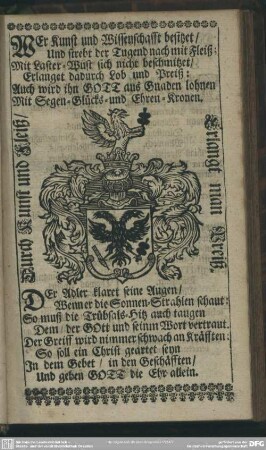 WEr Kunst und Wissenschafft besitzet/
Und strebt der Tugend nach mit Fleiß:
Mit Laster-Wust sich nicht beschmitzet/
Erlanget dadurch Lob und Preiß:
Auch wird ihn GOTT aus Gnaden lohnen
Mit Segen-Glücks- und Ehren-Kronen.
Durch Kunst und Fleiß/
Erlangt man Preiß.
DEr Adler klaret seine Augen/
Wenn er die Sonnen-Strahlen schaut:
So muß die Trübsals-Hitz auch taugen
Dem/ der GOtt und seinm Wort vertraut.
Der Greiff wird nimmer schwach an Kräfften:
So soll ein Christ geartet seyn
In dem Gebet/ in den Geschäfften/
Und geben GOTT die Ehr allein.